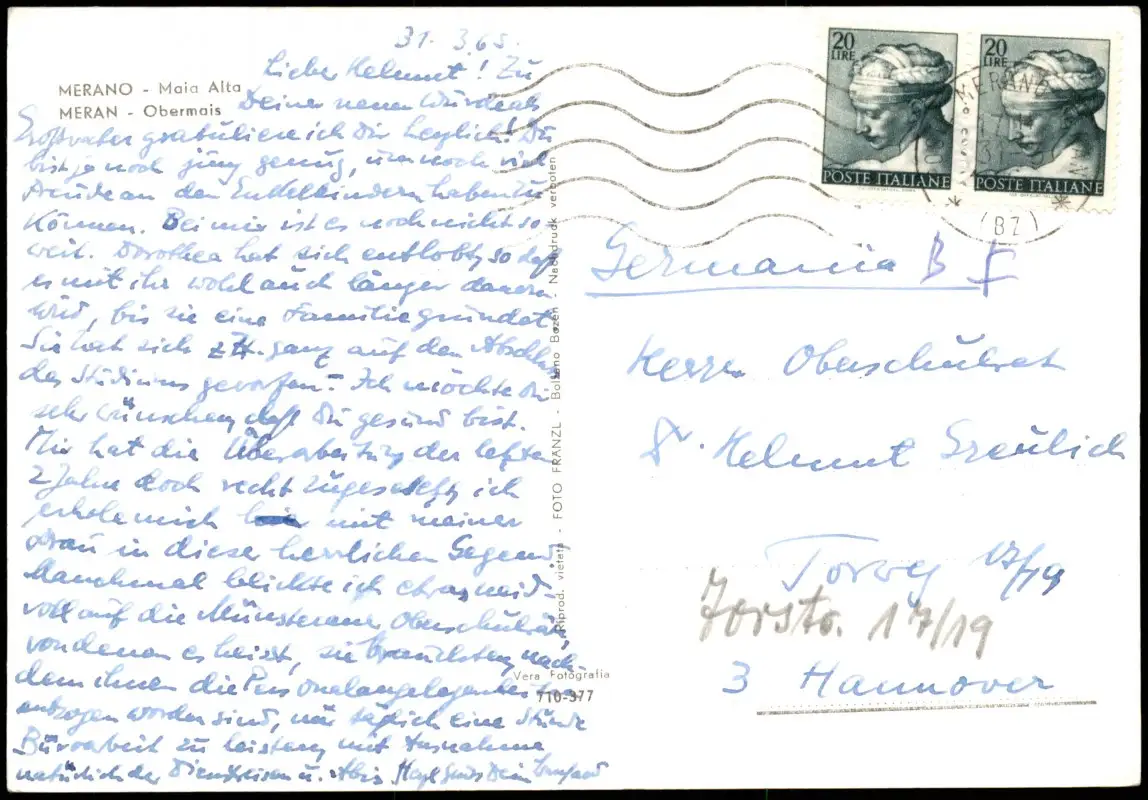 31. 3. 65.
Lieber Helmut! Zu
MERANO - Maia Alta
MERAN - Obermais
Deiner neuen Würde als
Großvater gratuliere ich Dir herzlich! Du
bist ja noch jung genug, um noch viel
Freude an den Enkelkindern haben zu
können. Bei mir ist es noch nicht so
weit. Dorothea hat sich entlobt, so daß
es mit ihr wohl auch länger dauern
wird, bis sie eine Familie gründet.
Sie hat sich z. Zt. ganz auf den Abschluß
des Studiums geworfen. Ich möchte Dir
sehr wünschen, daß Du gesund bist.
Mir hat die Überarbeitung der letzten
2 Jahre doch recht zugesetzt, ich
erhole mich mit meiner
Frau in dieser herrlichen Gegend.
Manchmal blickte ich etwas neid-
voll auf die Münsteraner Oberschulräte,
von denen es heisst, sie brauchten, nach-
dem ihnen die Personalangelegenheiten
entzogen worden sind, nur täglich eine Stunde
Büroarbeit zu leisten, mit Ausnahme
natürlich der Dienstreisen u. Abis Herzl Gruß Dein
Riprod. vietata - FOTO FRANZL - Bolzano Bozen - Nachdruck verboten
Vera Fotografia
710-377
20
LIRE
POSTE ITALIANE
20
LIRE
POSTE ITALIANE
MERANO
(BZ)
Germania
Herrn Oberschulrat
Dr. Helmut Greulich
17/19
Forstr. 17/19
3 Hannover